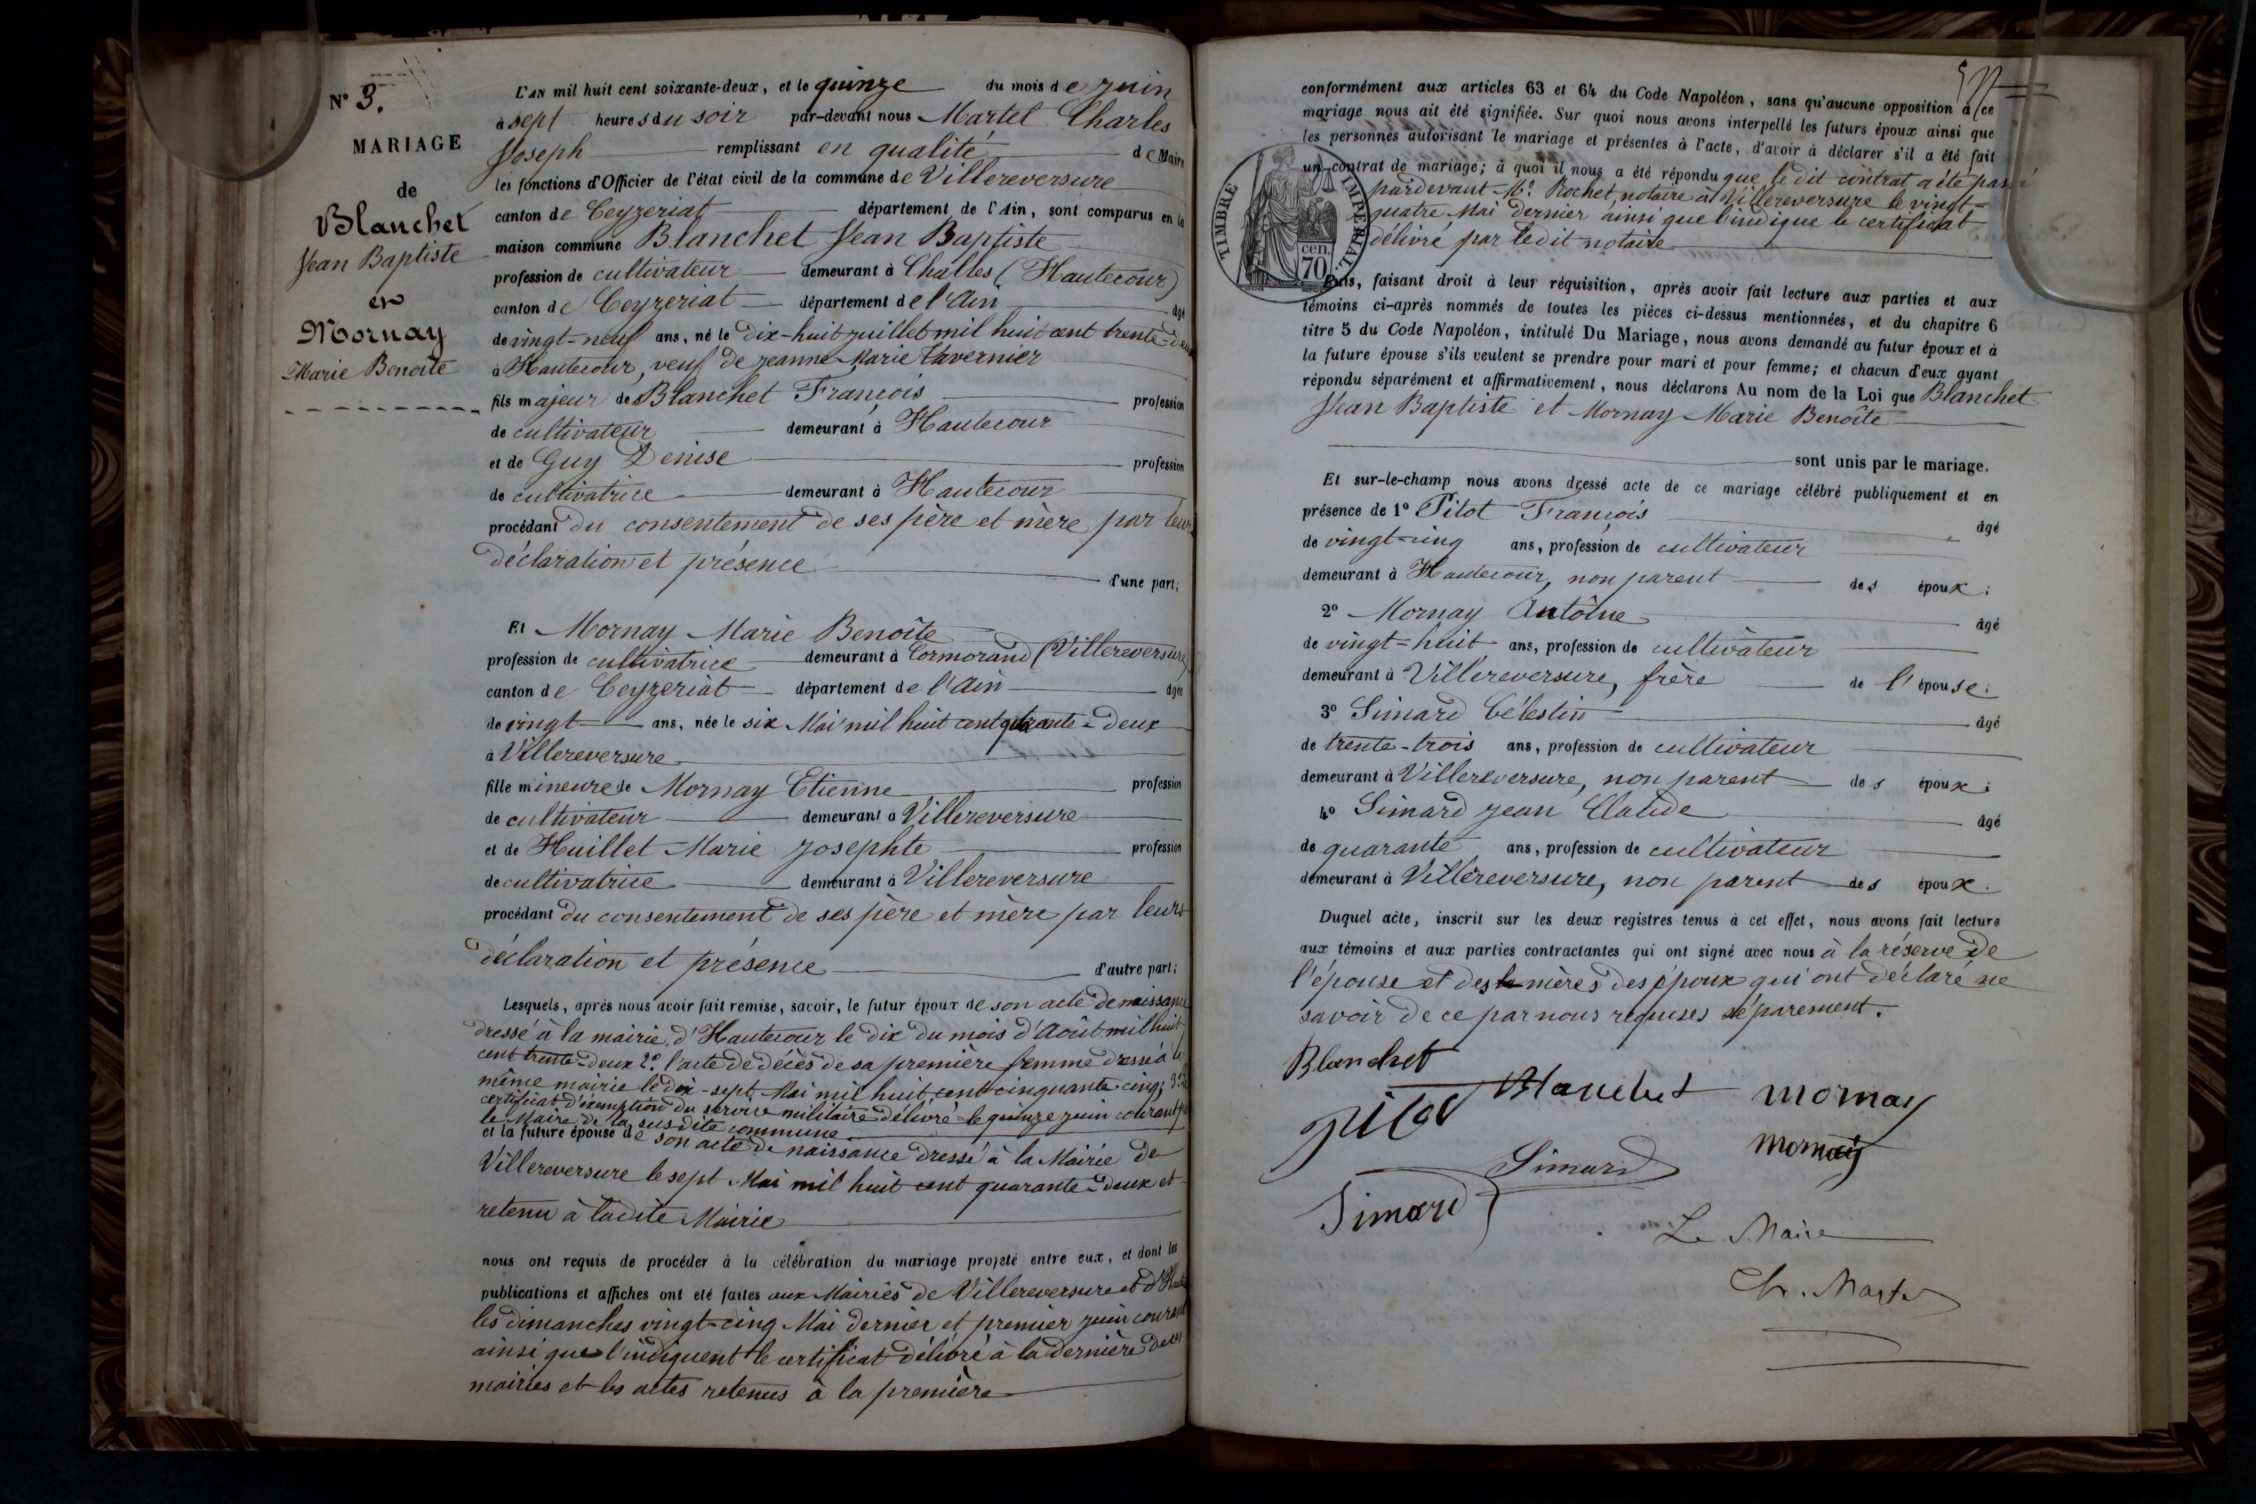 N° 3.
MARIAGE
de
Blanchet
Jean Baptiste
et
Mornay
Marie Benoîte
L'AN mil huit cent soixante-deux, et le quinze du mois de juin
à sept heures du soir par-devant nous Martel Charles
Joseph remplissant en qualité de Maire
les fonctions d'Officier de l'état civil de la commune de Villereversure
canton de Ceyzeriat département de l'Ain, sont comparus en la
maison commune Blanchet Jean Baptiste
profession de cultivateur demeurant à Challes (Hautecour)
canton de Ceyzeriat département de l'Ain âgé
de vingt-neuf ans, né le dix-huit juillet mil huit cent trente-deux
à Hautecour, veuf de jeanne Marie Tavernier
fils majeur de Blanchet François profession
de cultivateur demeurant à Hautecour
et de Guy Denise profession
de cultivatrice demeurant à Hautecour
procédant du consentement de ses père et mère par leur
déclaration et présence d'une part;
Et Mornay Marie Benoîte
profession de cultivatrice demeurant à Cormorand (Villereversure)
canton de Ceyzeriat département de l'Ain âgée
de vingt ans, née le six Mai mil huit cent quarante-deux
à Villereversure
fille mineure de Mornay Etienne profession
de cultivateur demeurant à Villereversure
et de Huillet Marie josephte profession
de cultivatrice demeurant à Villereversure
procédant du consentement de ses père et mère par leurs
déclaration et présence d'autre part;
Lesquels, après nous avoir fait remise, savoir, le futur époux de son acte de naissance
dressé à la mairie d'Hautecour le dix du mois d'Août mil huit
cent trente-deux 2° l'acte de décès de sa première femme dressé à la
même mairie le dix-sept Mai mil huit cent cinquante cinq; 3°
certificat d'exemption du service militaire délivré le quinze juin courant
le Maire de la susdite commune
et la future épouse de son acte de naissance dressé à la Mairie de
Villereversure le sept Mai mil huit cent quarante-deux et
retenu à ladite Mairie
nous ont requis de procéder à la célébration du mariage projeté entre eux, et dont les
publications et affiches ont été faites aux Mairies de Villereversure et
les dimanches vingt-cinq Mai dernier et premier juin courant
ainsi que l'indiquent le certificat délivré à la dernière de ces
mairies et les actes retenus à la première
conformément aux articles 63 et 64 du Code Napoléon, sans qu'aucune opposition à ce
mariage nous ait été signifiée. Sur quoi nous avons interpellé les futurs époux ainsi que
les personnes autorisant le mariage et présentes à l'acte, d'avoir à déclarer s'il a été fait
un contrat de mariage; à quoi il nous a été répondu que le dit contrat a été passé
pardevant Me. Rochet, notaire à Villereversure le vingt-
quatre Mai dernier ainsi que l'indique le certificat
délivré par ledit notaire
TIMBRE IMPÉRIAL.
70 cen.
Puis, faisant droit à leur réquisition, après avoir fait lecture aux parties et aux
témoins ci-après nommés de toutes les pièces ci-dessus mentionnées, et du chapitre 6
titre 5 du Code Napoléon, intitulé Du Mariage, nous avons demandé au futur époux et à
la future épouse s'ils veulent se prendre pour mari et pour femme; et chacun d'eux ayant
répondu séparément et affirmativement, nous déclarons Au nom de la Loi que Blanchet
Jean Baptiste et Mornay Marie Benoîte
sont unis par le mariage.
Et sur-le-champ nous avons dressé acte de ce mariage célébré publiquement et en
présence de 1° Pitot François âgé
de vingt-cinq ans, profession de cultivateur
demeurant à Hautecour, non parent des époux;
2° Mornay Antoîne âgé
de vingt-huit ans, profession de cultivateur
demeurant à Villereversure, frère de l'épouse;
3° Simard Célestin âgé
de trente-trois ans, profession de cultivateur
demeurant à Villereversure, non parent des époux;
4° Simard jean Claude âgé
de quarante ans, profession de cultivateur
demeurant à Villereversure, non parent des époux.
Duquel acte, inscrit sur les deux registres tenus à cet effet, nous avons fait lecture
aux témoins et aux parties contractantes qui ont signé avec nous à la réserve de
l'épouse et des mères des époux qui ont déclaré ne
savoir de ce par nous requises séparement.
Blanchet
Pitot Blanchet Mornay
Mornay
Simard
Simard
Le Maire
Ch. Martel